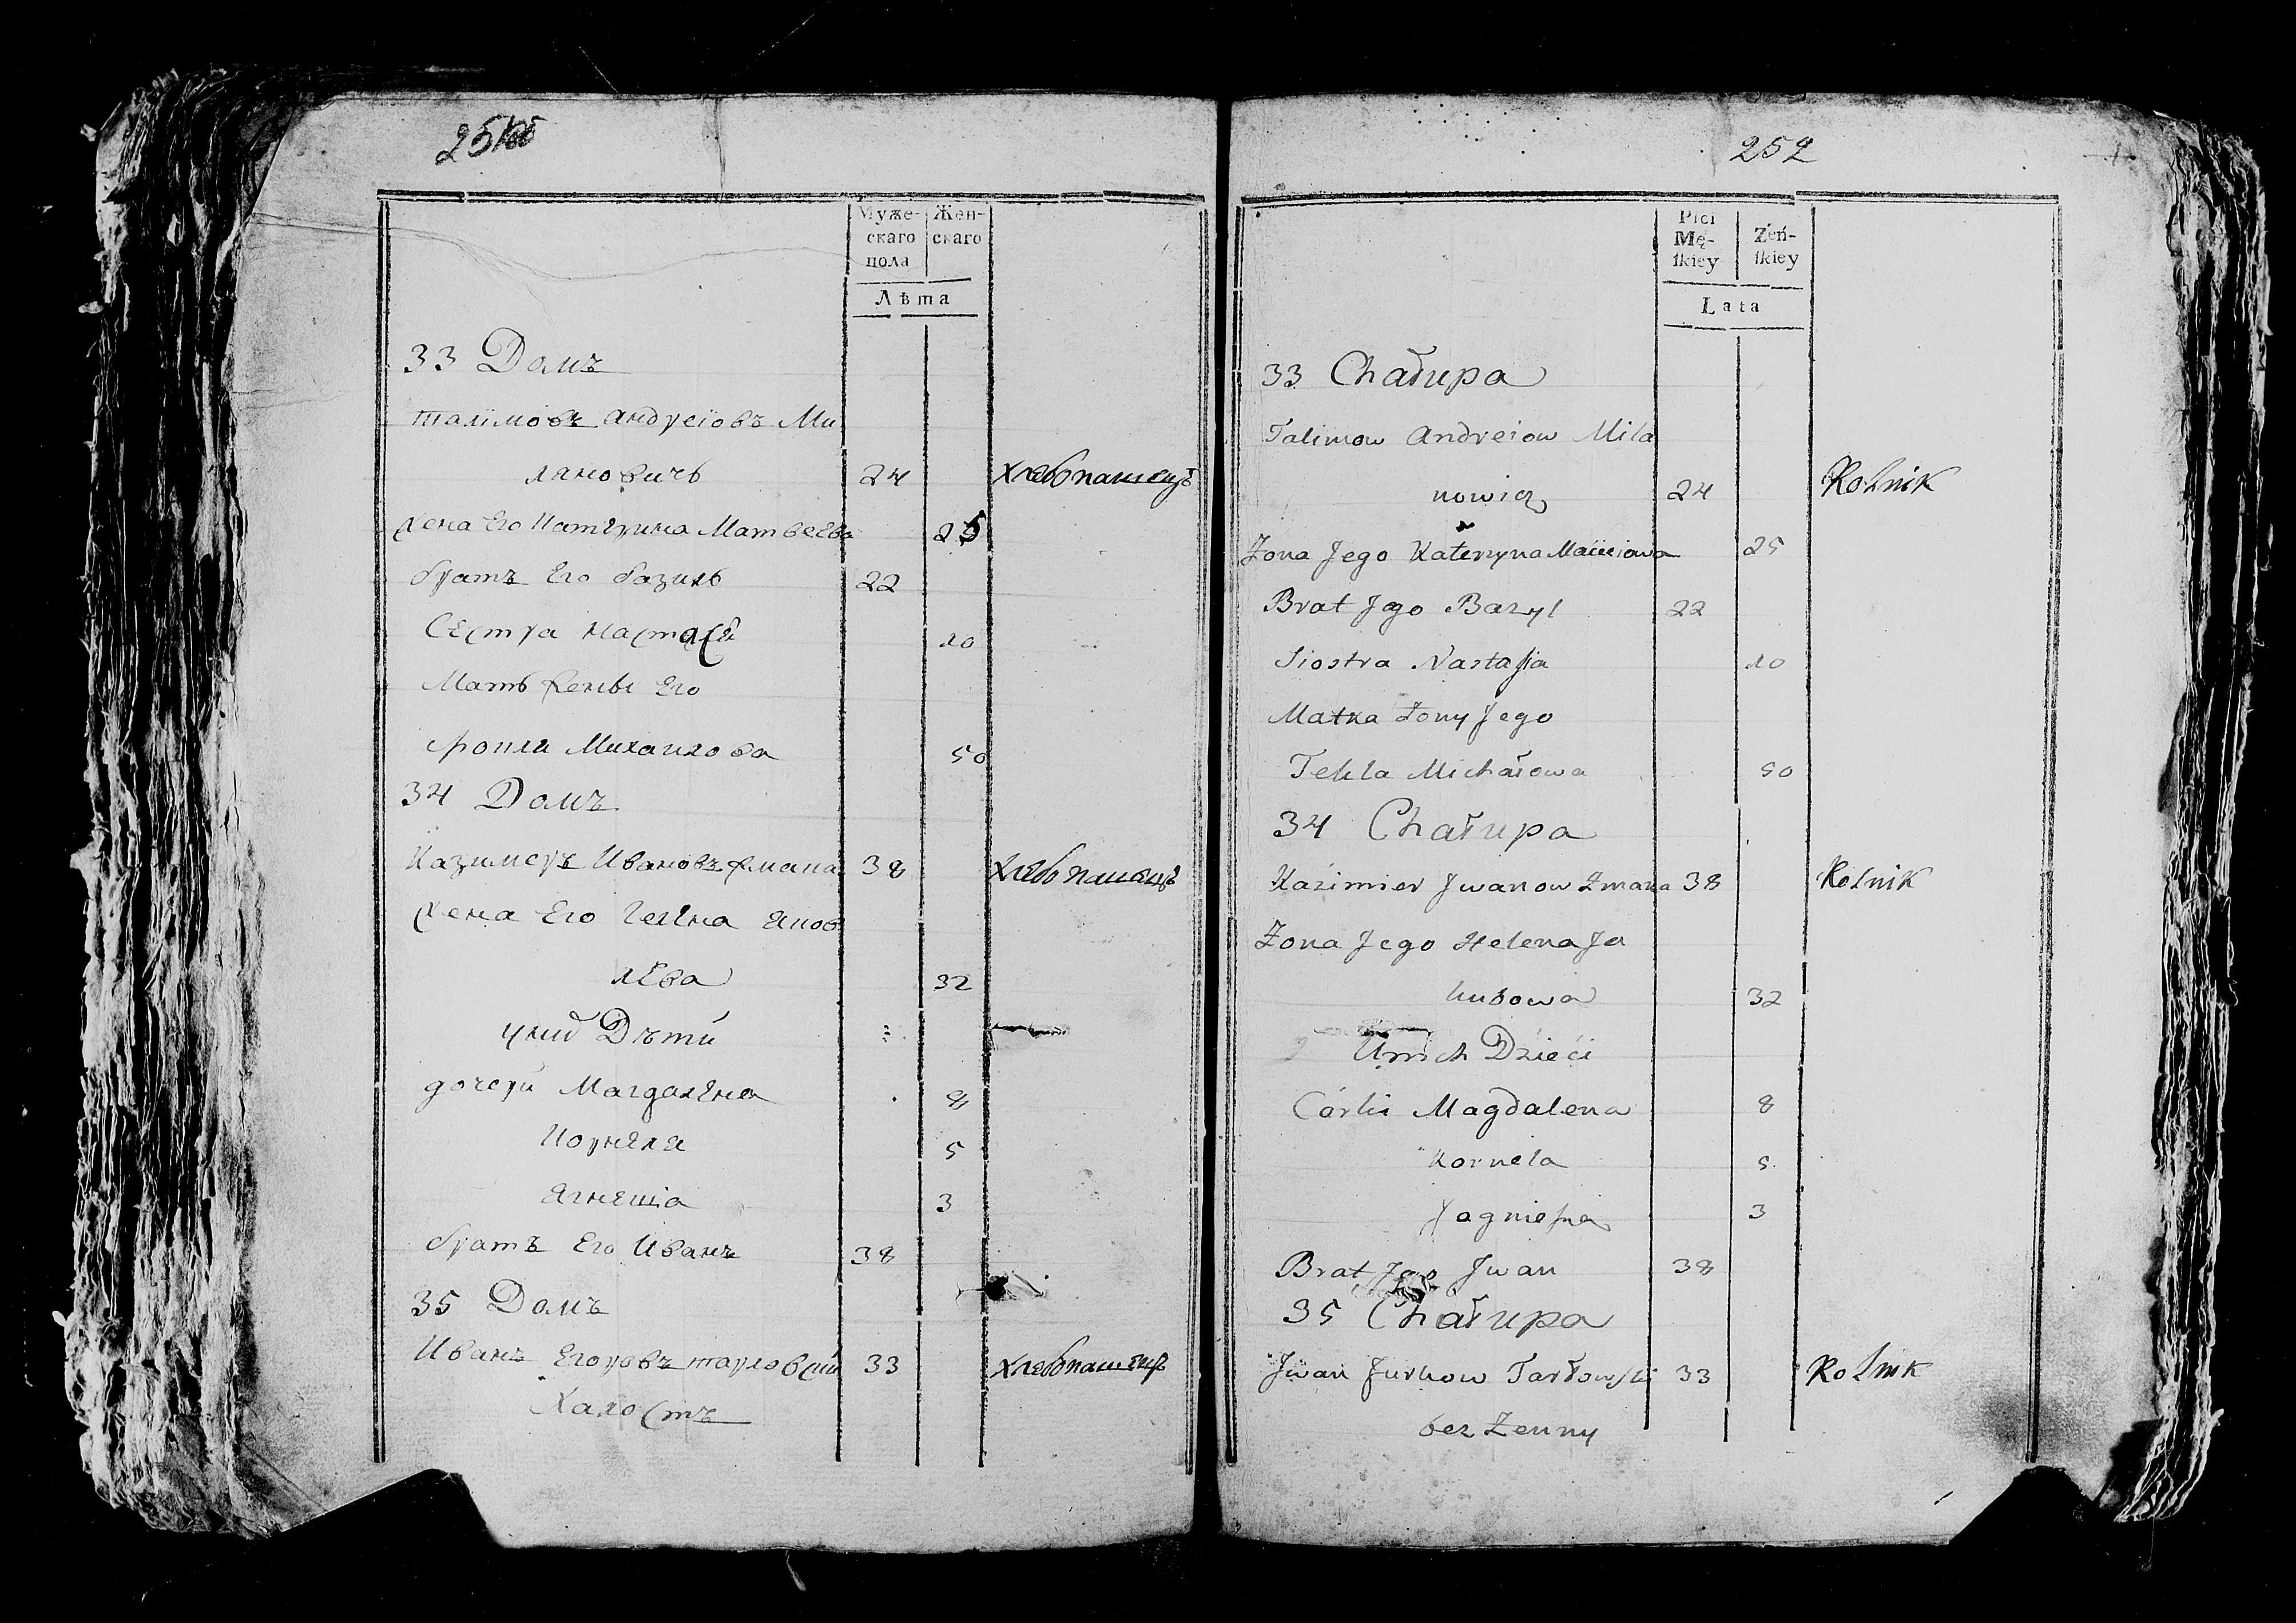 251
Муже-
скаго
пола
Жен-
скаго
Лѣта
33 Домъ
талимовъ андреіовъ Ми
ляновичъ 24 хлебопашецъ
жена Его Катерина Матвеева 25
братъ Его базиль 22
Сестра настасіи 10
Мать жены Его
Михаилова 50
34 Домъ
Казимеръ Ивановъ жмака 38 хлебопашецъ
жена Его гелена Яков
лева 32
унид Дѣти
дочери Магдалена 8
Корнеля 5
Ягнешіа 3
братъ Его Иванъ 38
35 Домъ
Иванъ Егоровъ тарловски 33 хлебопашецъ
Халостъ
252
Płci
Mę-
ſkiey
Żeń-
ſkiey
Lata
33 Chałupa
Talimow Andreiow Mila
nowicz 24 Rolnik
Zona Jego Katerzyna Macieiowa 25
Brat Jego Bazyl 22
Siostra Nastaſia 10
Matka Zony Jego
Tekla Michałowa 50
34 Chałupa
Kazimier Jwanow Zmaka 38 Rolnik
Zona Jego Helena Ja
kubowa 32
Unich Dzieci
Córki Magdalena 8
Kornela 5
Jagnieſzka 3
Brat Jego Jwan 38
35 Chałupa
Jwan Jurkow Tarłowſki 33 Rolnik
bez Zenny